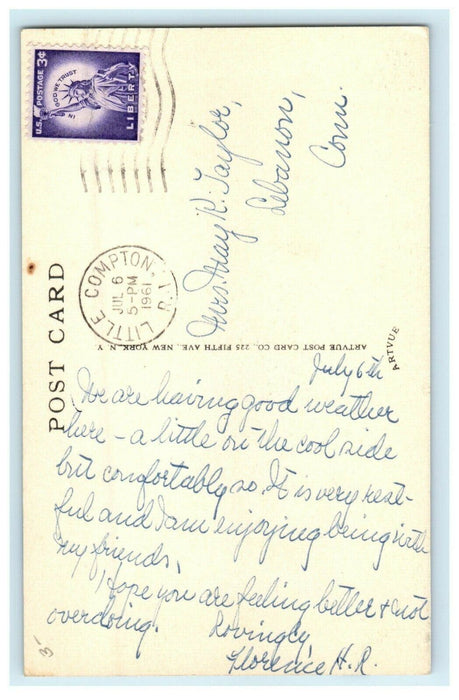 U.S. POSTAGE 3¢
IN GOD WE TRUST
LIBERTY
LITTLE COMPTON, R.I.
JUL 6
5-PM
1961
POST CARD
ARTVUE POST CARD CO., 225 FIFTH AVE., NEW YORK, N. Y.
ARTVUE
Mrs. May R. Taylor,
Lebanon,
Conn.
July 6th
We are having good weather
here - a little on the cool side
but comfortably so. It is very rest-
ful and I am enjoying being with
my friends.
Hope you are feeling better & not
overdoing.
Lovingly
Florence H. R.